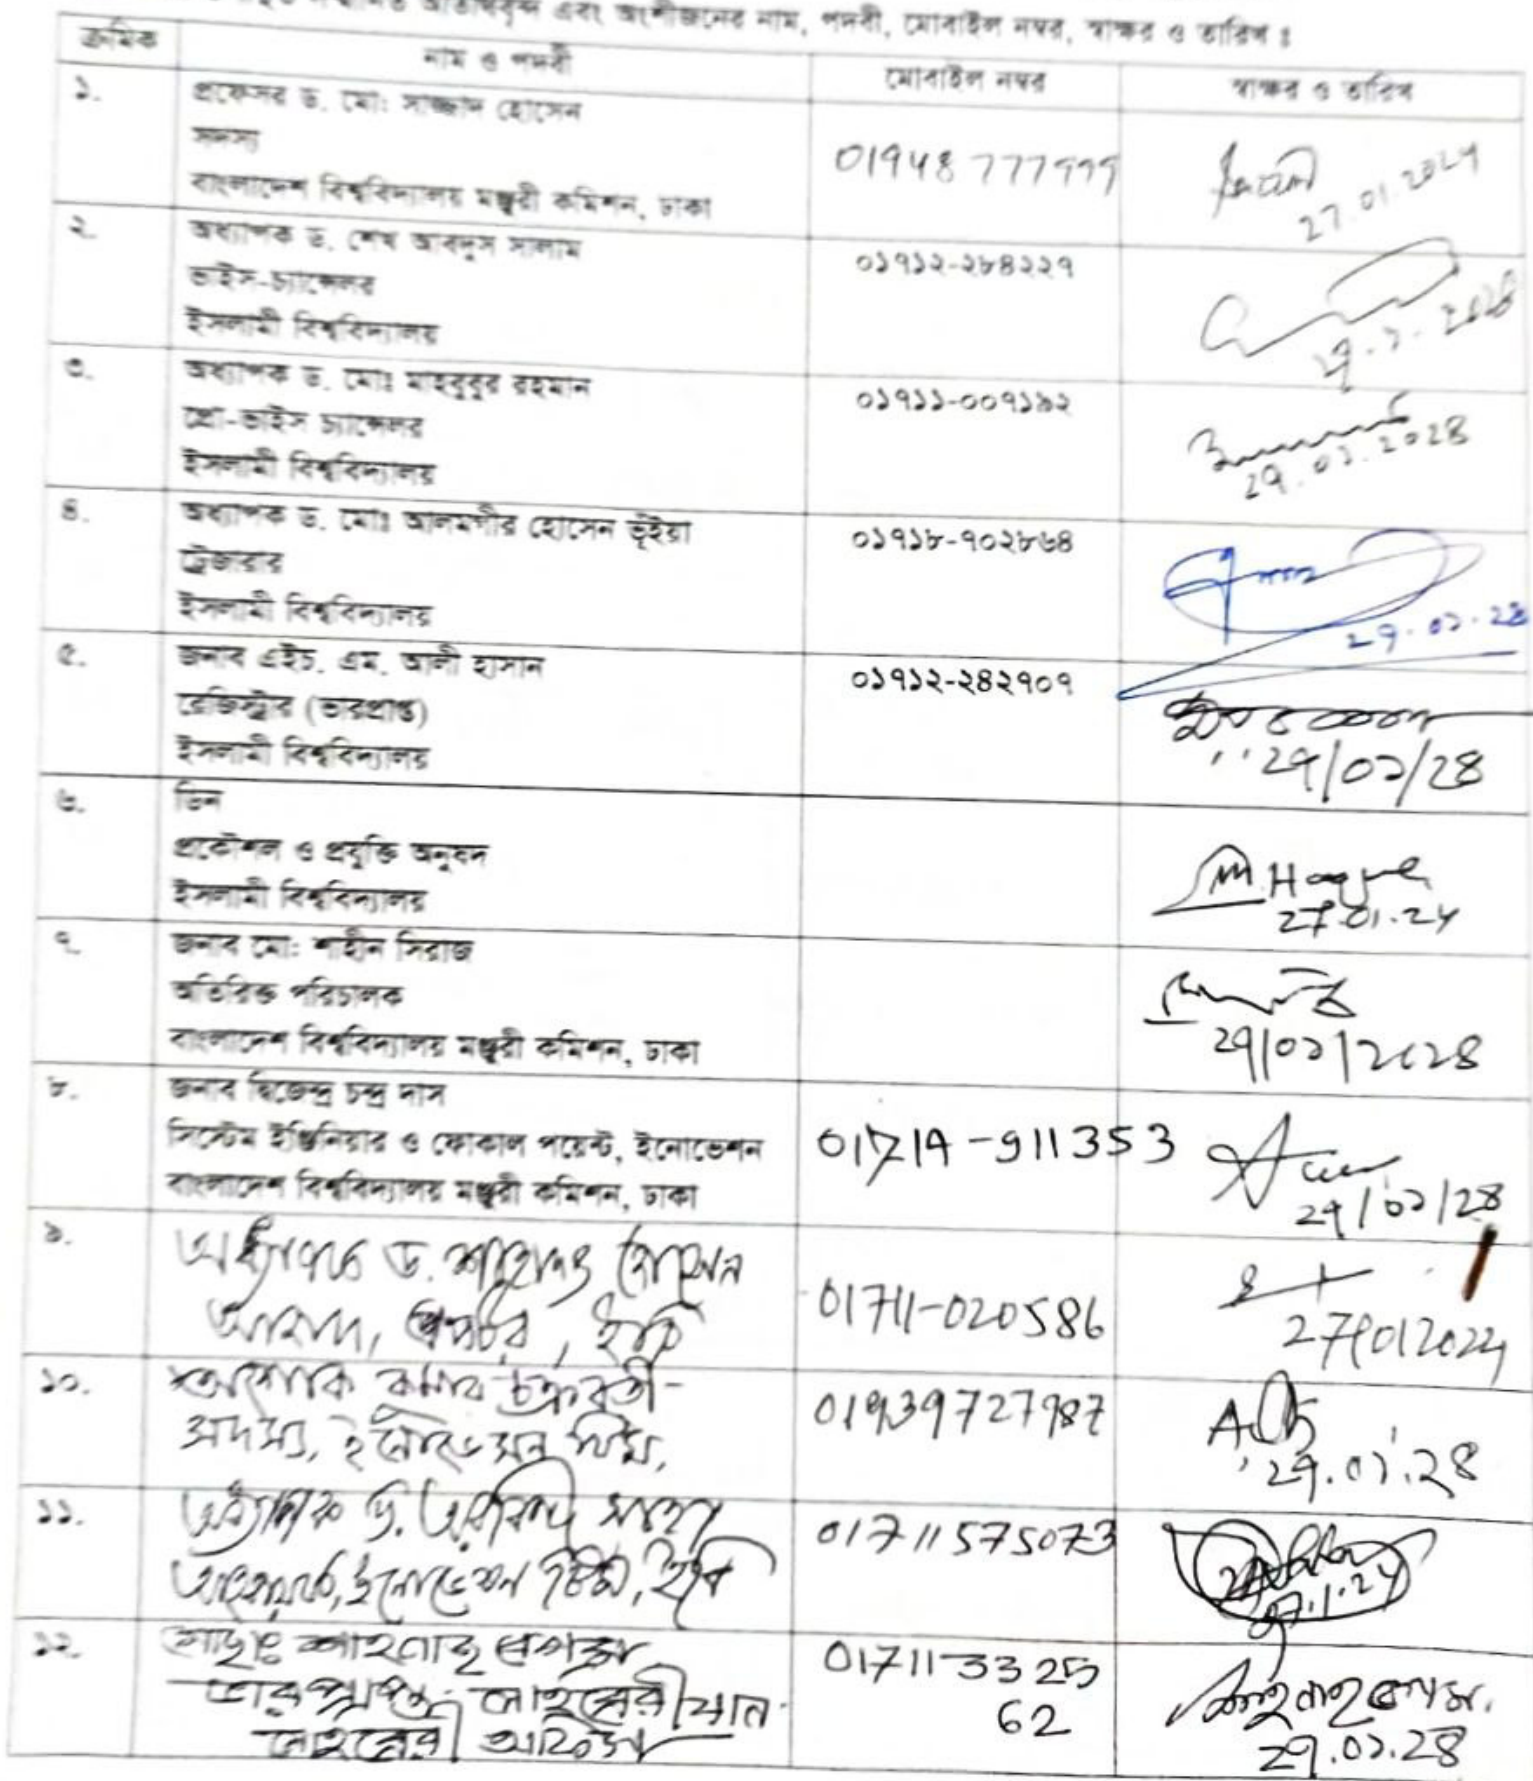 এবং অংশীজনের নাম, পদবী, মোবাইল নম্বর, স্বাক্ষর ও তারিখ ঃ
ক্রমিক নাম ও পদবী মোবাইল নম্বর স্বাক্ষর ও তারিখ
১. প্রফেসর ড. মো: সাজ্জাদ হোসেন
সদস্য
বাংলাদেশ বিশ্ববিদ্যালয় মঞ্জুরী কমিশন, ঢাকা
01948 777999
27.01.2024
২. অধ্যাপক ড. শেখ আবদুস সালাম
ভাইস-চ্যান্সেলর
ইসলামী বিশ্ববিদ্যালয়
০১৭১২-২৮৪২২৭
৩. অধ্যাপক ড. মোঃ মাহবুবুর রহমান
প্রো-ভাইস চ্যান্সেলর
ইসলামী বিশ্ববিদ্যালয়
০১৭১১-০০৭১৯২
২৭.০১.২০২৪
৪. অধ্যাপক ড. মোঃ আলমগীর হোসেন ভূঁইয়া
ট্রেজারার
ইসলামী বিশ্ববিদ্যালয়
০১৭১৮-৭০২৮৬৪
২৭.০১.২৪
৫. জনাব এইচ. এম. আলী হাসান
রেজিস্ট্রার (ভারপ্রাপ্ত)
ইসলামী বিশ্ববিদ্যালয়
০১৭১২-২৪২৭০৭
২৭/০১/২৪
৬. ডিন
প্রকৌশল ও প্রযুক্তি অনুষদ
ইসলামী বিশ্ববিদ্যালয়
M. Haque
27.01.24
৭. জনাব মো: শাহীন সিরাজ
অতিরিক্ত পরিচালক
বাংলাদেশ বিশ্ববিদ্যালয় মঞ্জুরী কমিশন, ঢাকা
২৭/০১/২০২৪
৮. জনাব দ্বিজেন্দ্র চন্দ্র দাস
সিস্টেম ইঞ্জিনিয়ার ও ফোকাল পয়েন্ট, ইনোভেশন
বাংলাদেশ বিশ্ববিদ্যালয় মঞ্জুরী কমিশন, ঢাকা
01714-911353
২৭/০১/২৪
৯. অধ্যাপক ড. শাহাদৎ হোসেন
আজাদ, প্রক্টর, ইবি
01711-020586
27/01/2024
১০. অশোক কুমার চক্রবর্তী
সদস্য, ইনোভেশন টিম,
01939727987
২৭.০১.২৪
১১. অধ্যাপক ড. অরবিন্দ সাহা
আহবায়ক, ইনোভেশন টিম, ইবি
01711575073
১২. মোছাঃ শাহনাজ বেগম
ভারপ্রাপ্ত লাইব্রেরীয়ান
লাইব্রেরী অফিস
01711-3325
62
শাহনাজ বেগম.
২৭.০১.২৪